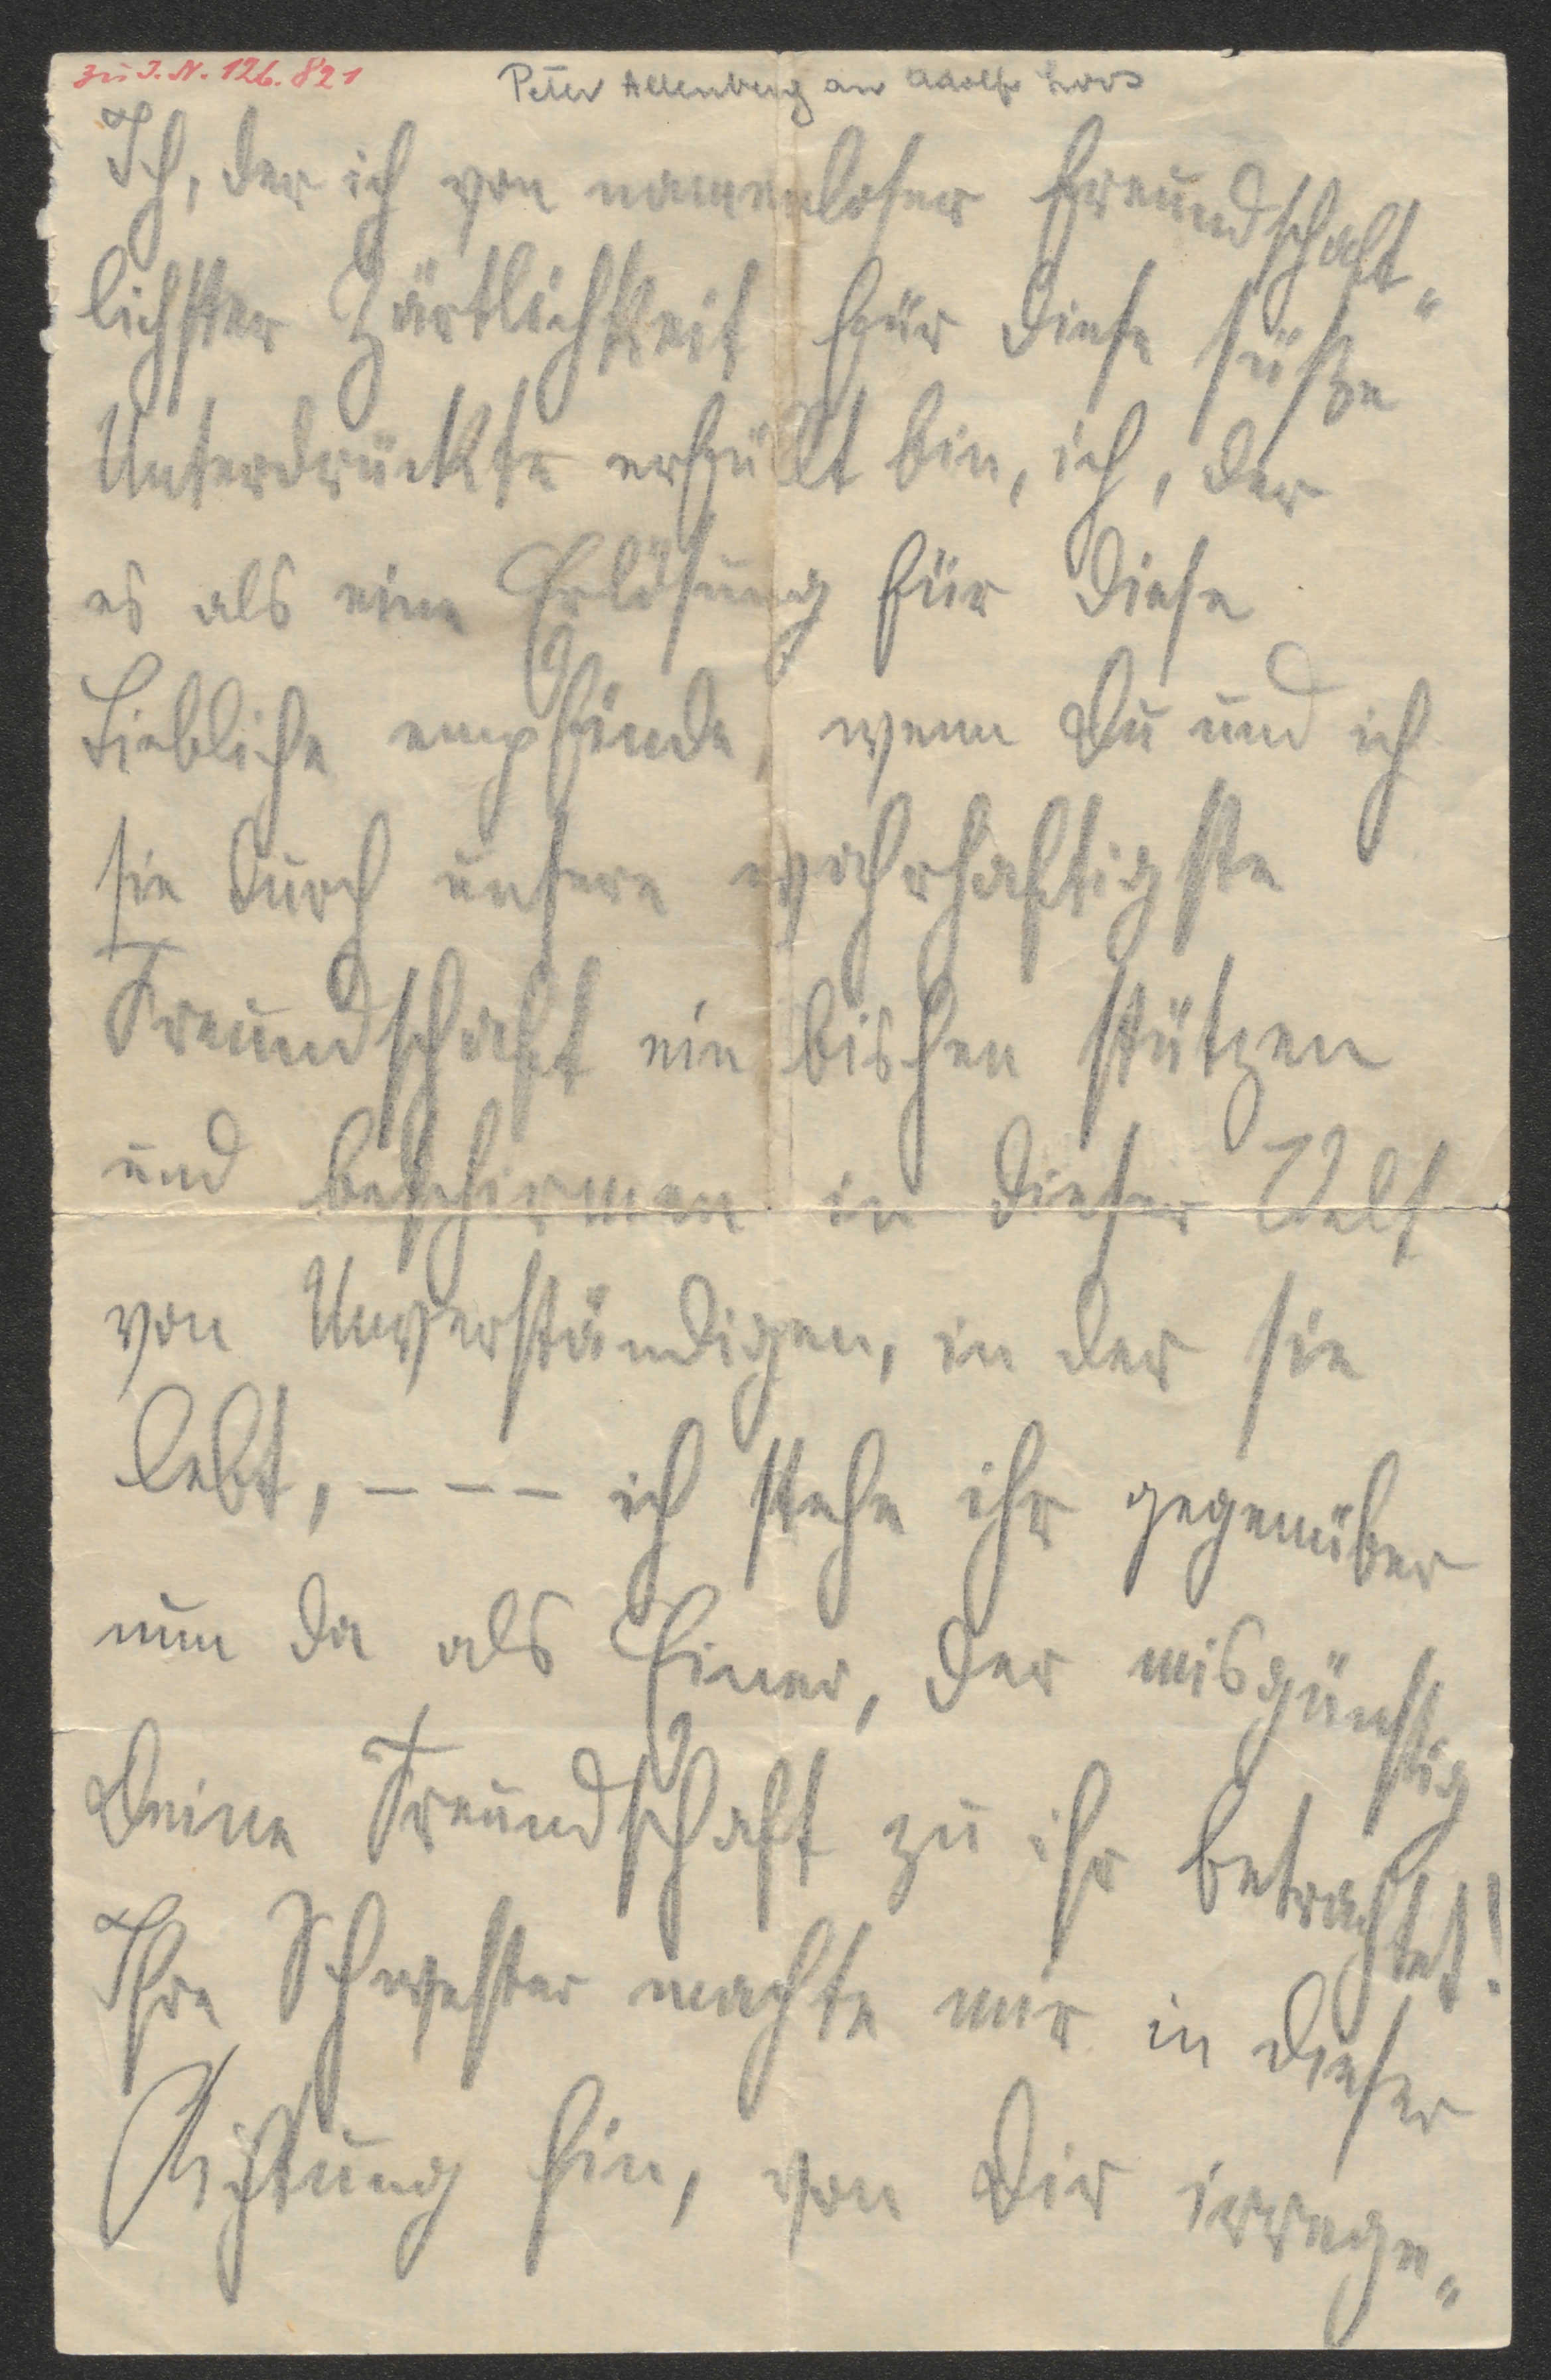 zu I.N. 126.821
Peter Altenberg an Adolf Loos
Ich, der ich von namenloser freundschaft„
lichster Zärtlichkeit für diese süße
Unterdrückte erfüllt bin, ich, der
es als eine Erlösung für diese
Liebliche empfinde, wenn Du und ich
sie durch unsere wahrhaftigste
Freundschaft ein bischen stützen
und beschirmen in dieser Welt
von Unverständigen, in der sie
lebt, – – – ich stehe ihr gegenüber
nun da als Einer, der misgünstig
Deine Freundschaft zu ihr betrachtet!
Ihre Schwester machte mir in dieser
Richtung hin, von Dir irrege„